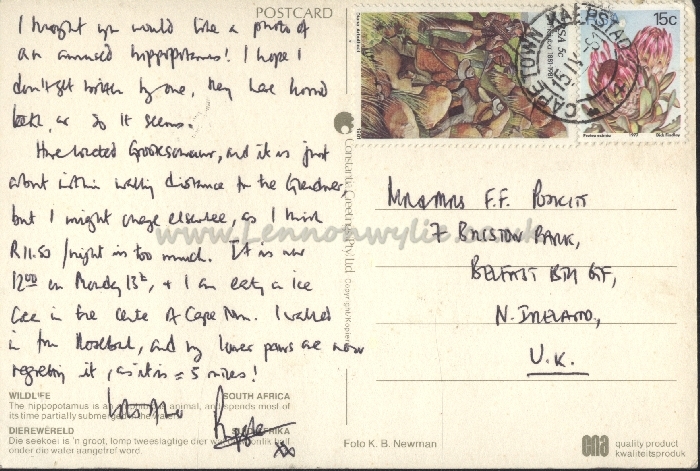 POSTCARD
I thought you would like a photo of
an amused hippopotamus! I hope I
don't get bitten by one, they have horrid
teeth, or so it seems.
Have located Grootschuur, and it is just
about within walking distance from the Gardens,
but I might change elsewhere, as I think
R11.50 /night is too much. It is now
12:00 on Monday 13th, & I am eating an ice
in the centre of Cape Town. I walked
in from Rosebank, and my lower paws are now
regretting it, as it is = 5 miles!
WILDLIFE SOUTH AFRICA
The hippopotamus is an animal, and spends most of
its time partially submerged
DIEREWÊRELD SUID-AFRIKA
Die seekoei is 'n groot, lomp tweeslagtige dier
onder die water aangetref word.
xx
Constantia Greetings (Pty) Ltd. Copyright/Kopiereg
Foto K. B. Newman
RSA 5c
1881-1981
CAPE TOWN KAAPSTAD
15c
1977
Dick Findlay
www.Lennonwylie.co.uk
MR & MRS F.F. POSKITT
7 BRISTOW PARK,
BELFAST BT9 6TF,
N. IRELAND,
U.K.
quality product
kwaliteitsproduk